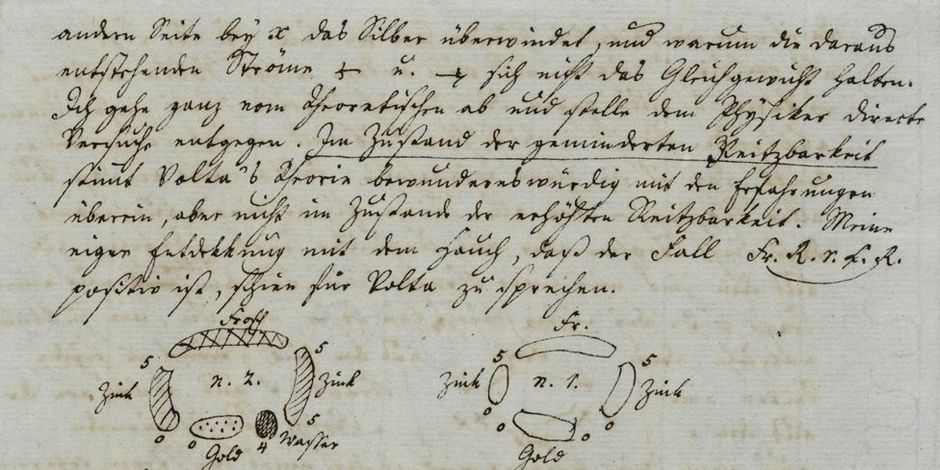 andern Seite bey x das Silber überwindet, und warum die daraus
entstehenden Ströme ← u. → sich nicht das Gleichgewicht halten.
Ich gehe ganz vom Theoretischen ab und stelle dem Physiker directe
Versuche entgegen. Im Zustand der geminderten Reitzbarkeit
stimt Volta's Theorie bewundernswürdig mit den Erfahrungen
überein, aber nicht im Zustande der erhöhten Reitzbarkeit. Meine
eigne Entdekkung mit dem Hauch, daß der Fall Fr. R. r. R.
positiv ist, schien für Volta zu sprechen.
Frosch Fr.
5 5 5 5
Zink n. 2. Zink Zink n. 1. Zink
0 0 4 Wasser 5 0 0 0
Gold Gold